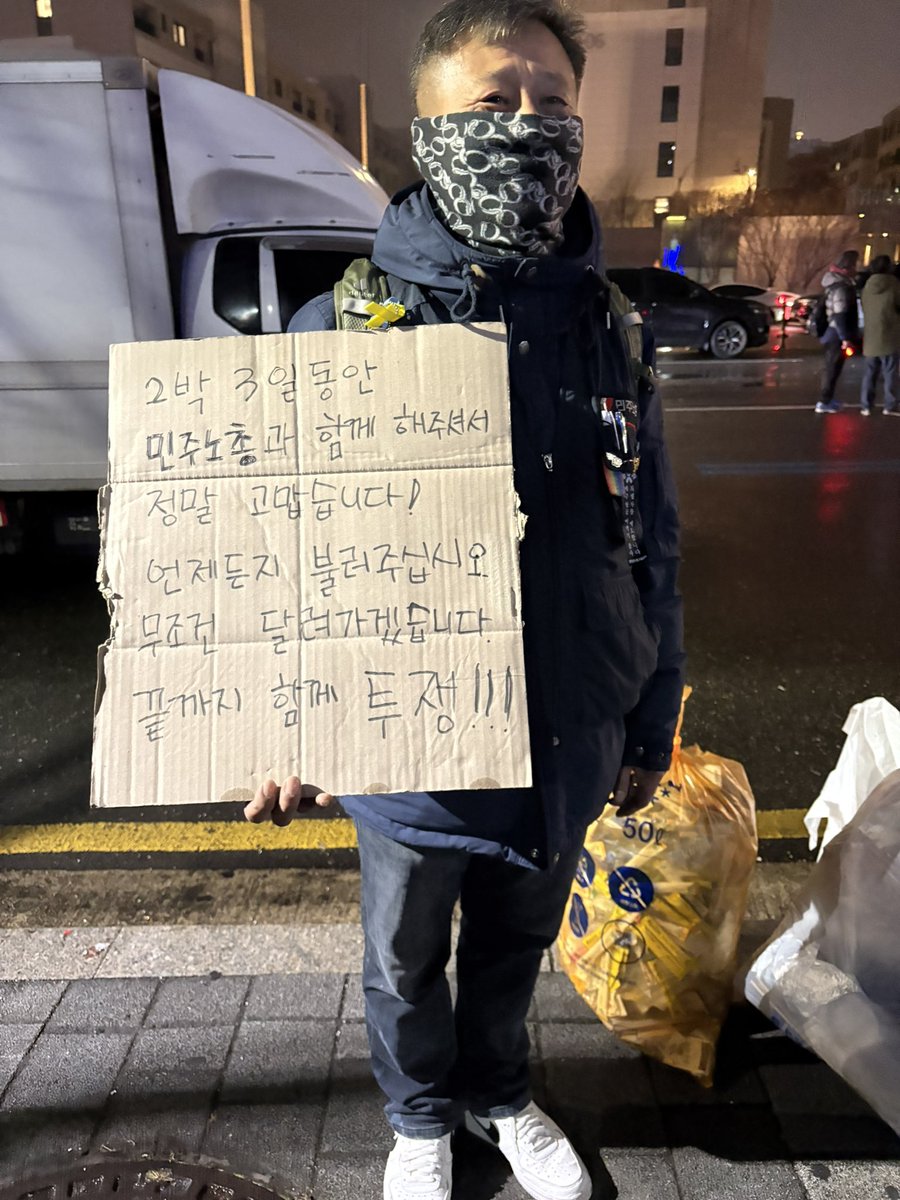 2박 3일동안
민주노총과 함께 해주셔서
정말 고맙습니다!
언제든지 불러주십시오
무조건 달려가겠습니다.
끝까지 함께 투쟁!!!
50ℓ